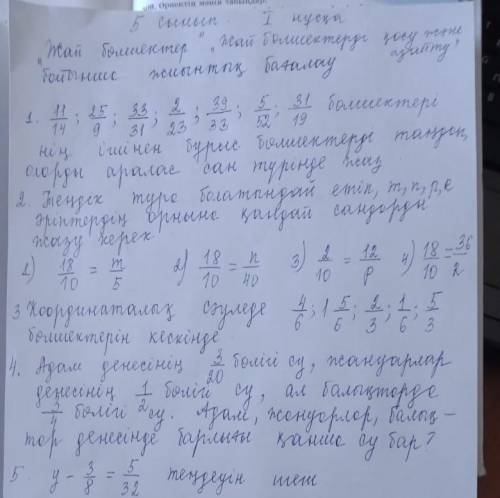 Өрнектің мәнін табыңдар.
5 сынып. I нұсқа
"Жай бөлшектер", "Жай бөлшектерді қосу және азайту"
бойынша жиынтық бағалау
1. 11/14; 25/9; 33/31; 2/23; 39/33; 5/52; 31/19 бөлшектері
нің ішінен бұрыс бөлшектерді таңдап,
оларды аралас сан түрінде жаз
2. Теңдік тура болатындай етіп, m, n, p, e
әріптердің орнына қандай сандарды
жазу керек
1) 18/10 = m/5 2) 18/10 = n/40 3) 2/10 = 12/p 4) 18/10 = 36/2
3. Координаталық сәуледе 4/6; 1 5/6; 2/3; 1/6; 5/3
бөлшектерін кескінде
4. Адам денесінің 3/20 бөлігі су, жануарлар
денесінің 1/2 бөлігі су, ал балықтарда
3/4 бөлігі су. Адам, жануарлар, балық-
тар денесінде барлығы қанша су бар?
5. y - 3/8 = 5/32 теңдеуін шеш